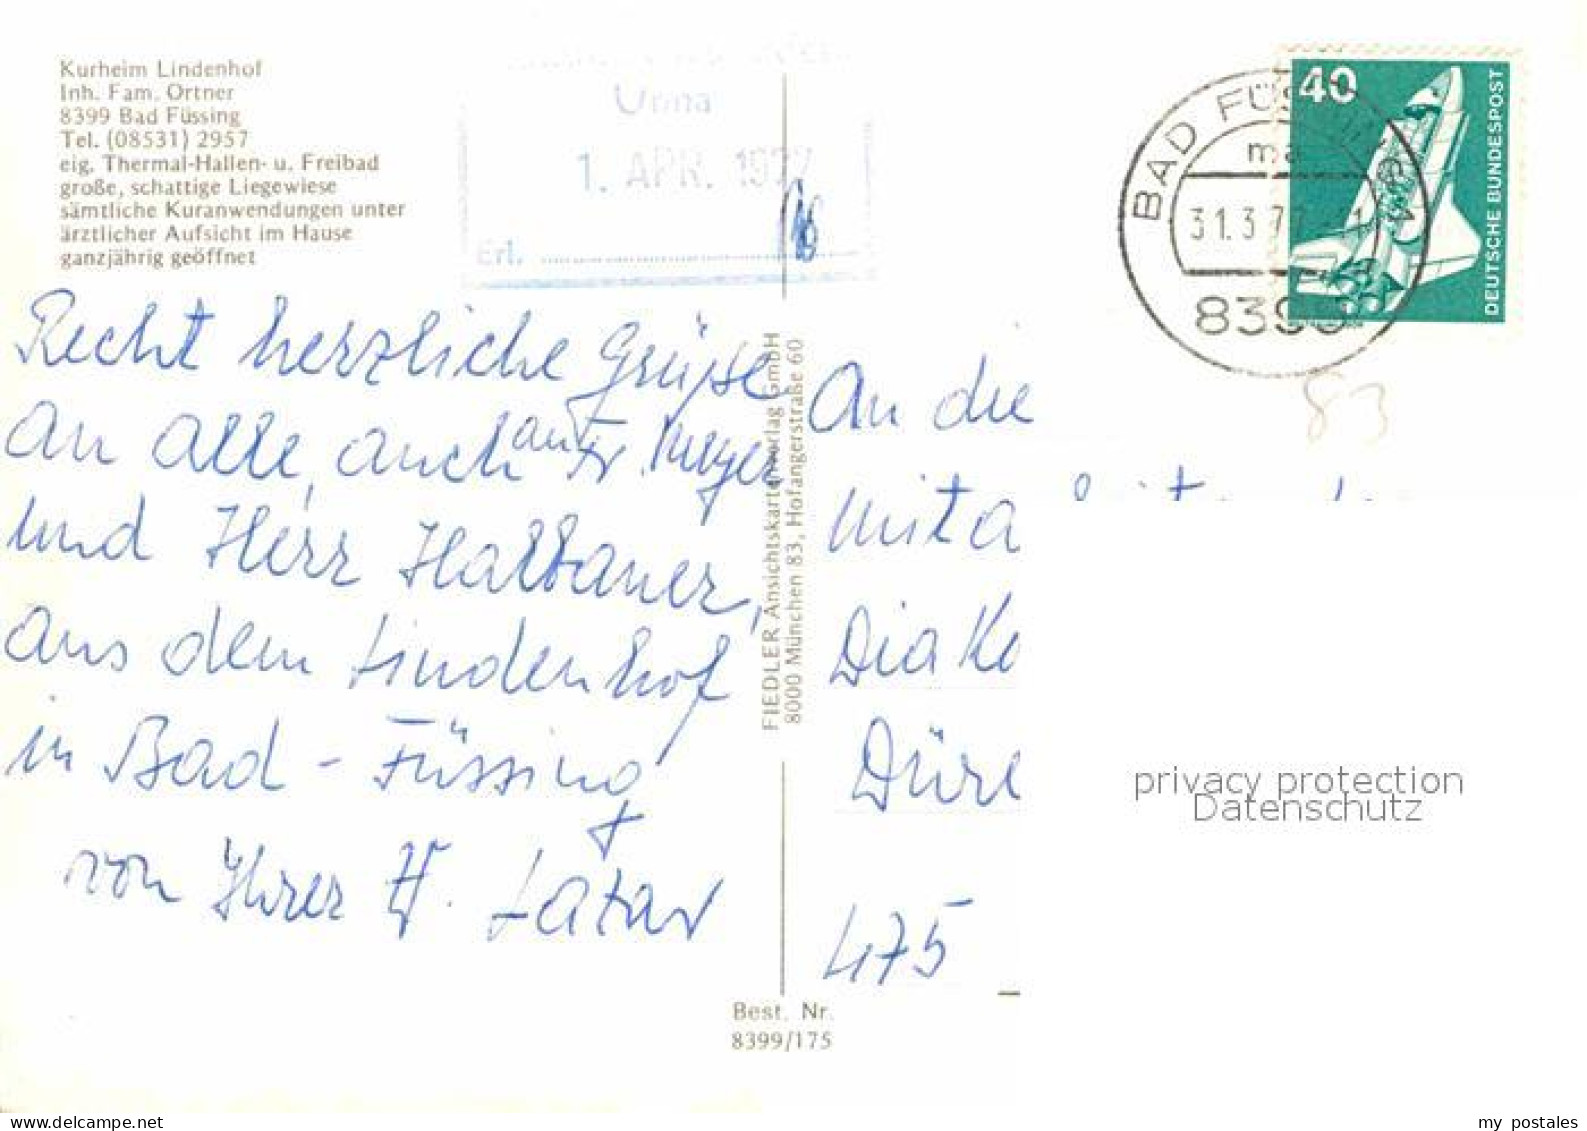 Kurheim Lindenhof
Inh. Fam. Ortner
8399 Bad Füssing
Tel. (08531) 2957
eig. Thermal-Hallen- u. Freibad
große, schattige Liegewiese
sämtliche Kuranwendungen unter
ärztlicher Aufsicht im Hause
ganzjährig geöffnet
Unna
1. APR. 1977
Erl.
BAD FÜSSING 1
ma
31.3.77
8399
40
DEUTSCHE BUNDESPOST
83
Recht herzliche Grüße
an alle, auch an Fr. Meyer
und Herr Halbauer,
aus dem Lindenhof
in Bad - Füssing
von Ihrer
FIEDLER Ansichtskartenverlag GmbH
8000 München 83, Hofangerstraße 60
An die
Mita
Diako
Düre
475
privacy protection
Datenschutz
Best. Nr.
8399/175
my postales